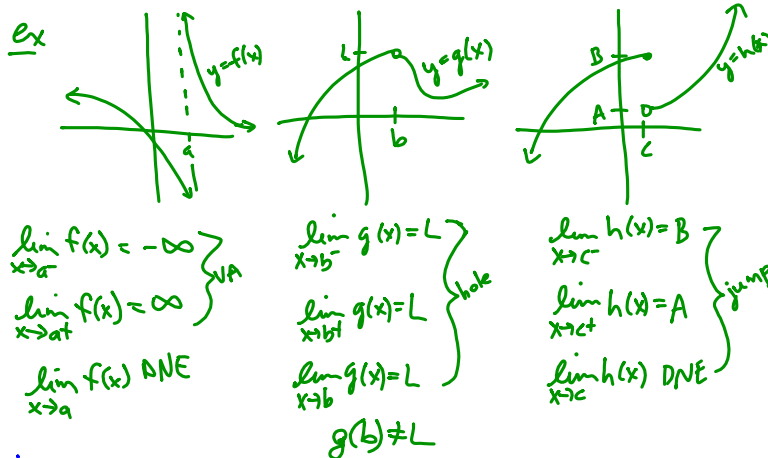 ex
y=f(x)
a
L
y=g(x)
b
B
A
y=h(x)
c
lim x→a⁻ f(x) = -∞
lim x→a⁺ f(x) = ∞
VA
lim x→a f(x) DNE
lim x→b⁻ g(x) = L
lim x→b⁺ g(x) = L
lim x→b g(x) = L
hole
g(b) ≠ L
lim x→c⁻ h(x) = B
lim x→c⁺ h(x) = A
lim x→c h(x) DNE
jump